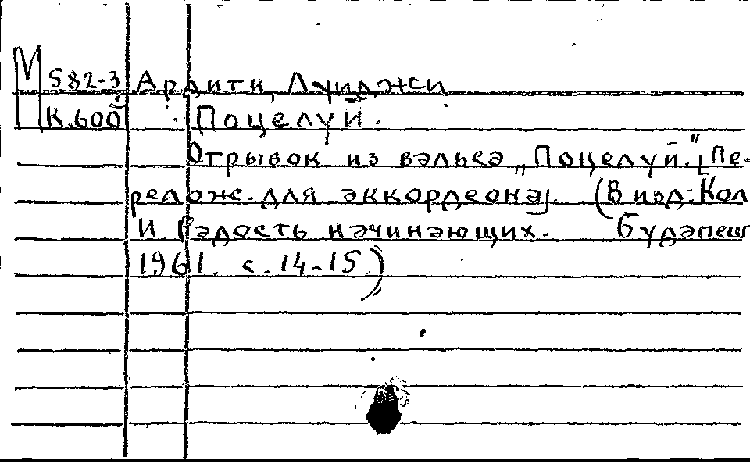 М 582-3 Ардити, Луиджи
К.600 Поцелуй.
Отрывок из вальса „Поцелуй." [Пе-
релож. для аккордеона]. (В изд: Кол
И Радость начинающих. Будапешт
1961. с. 14-15.)